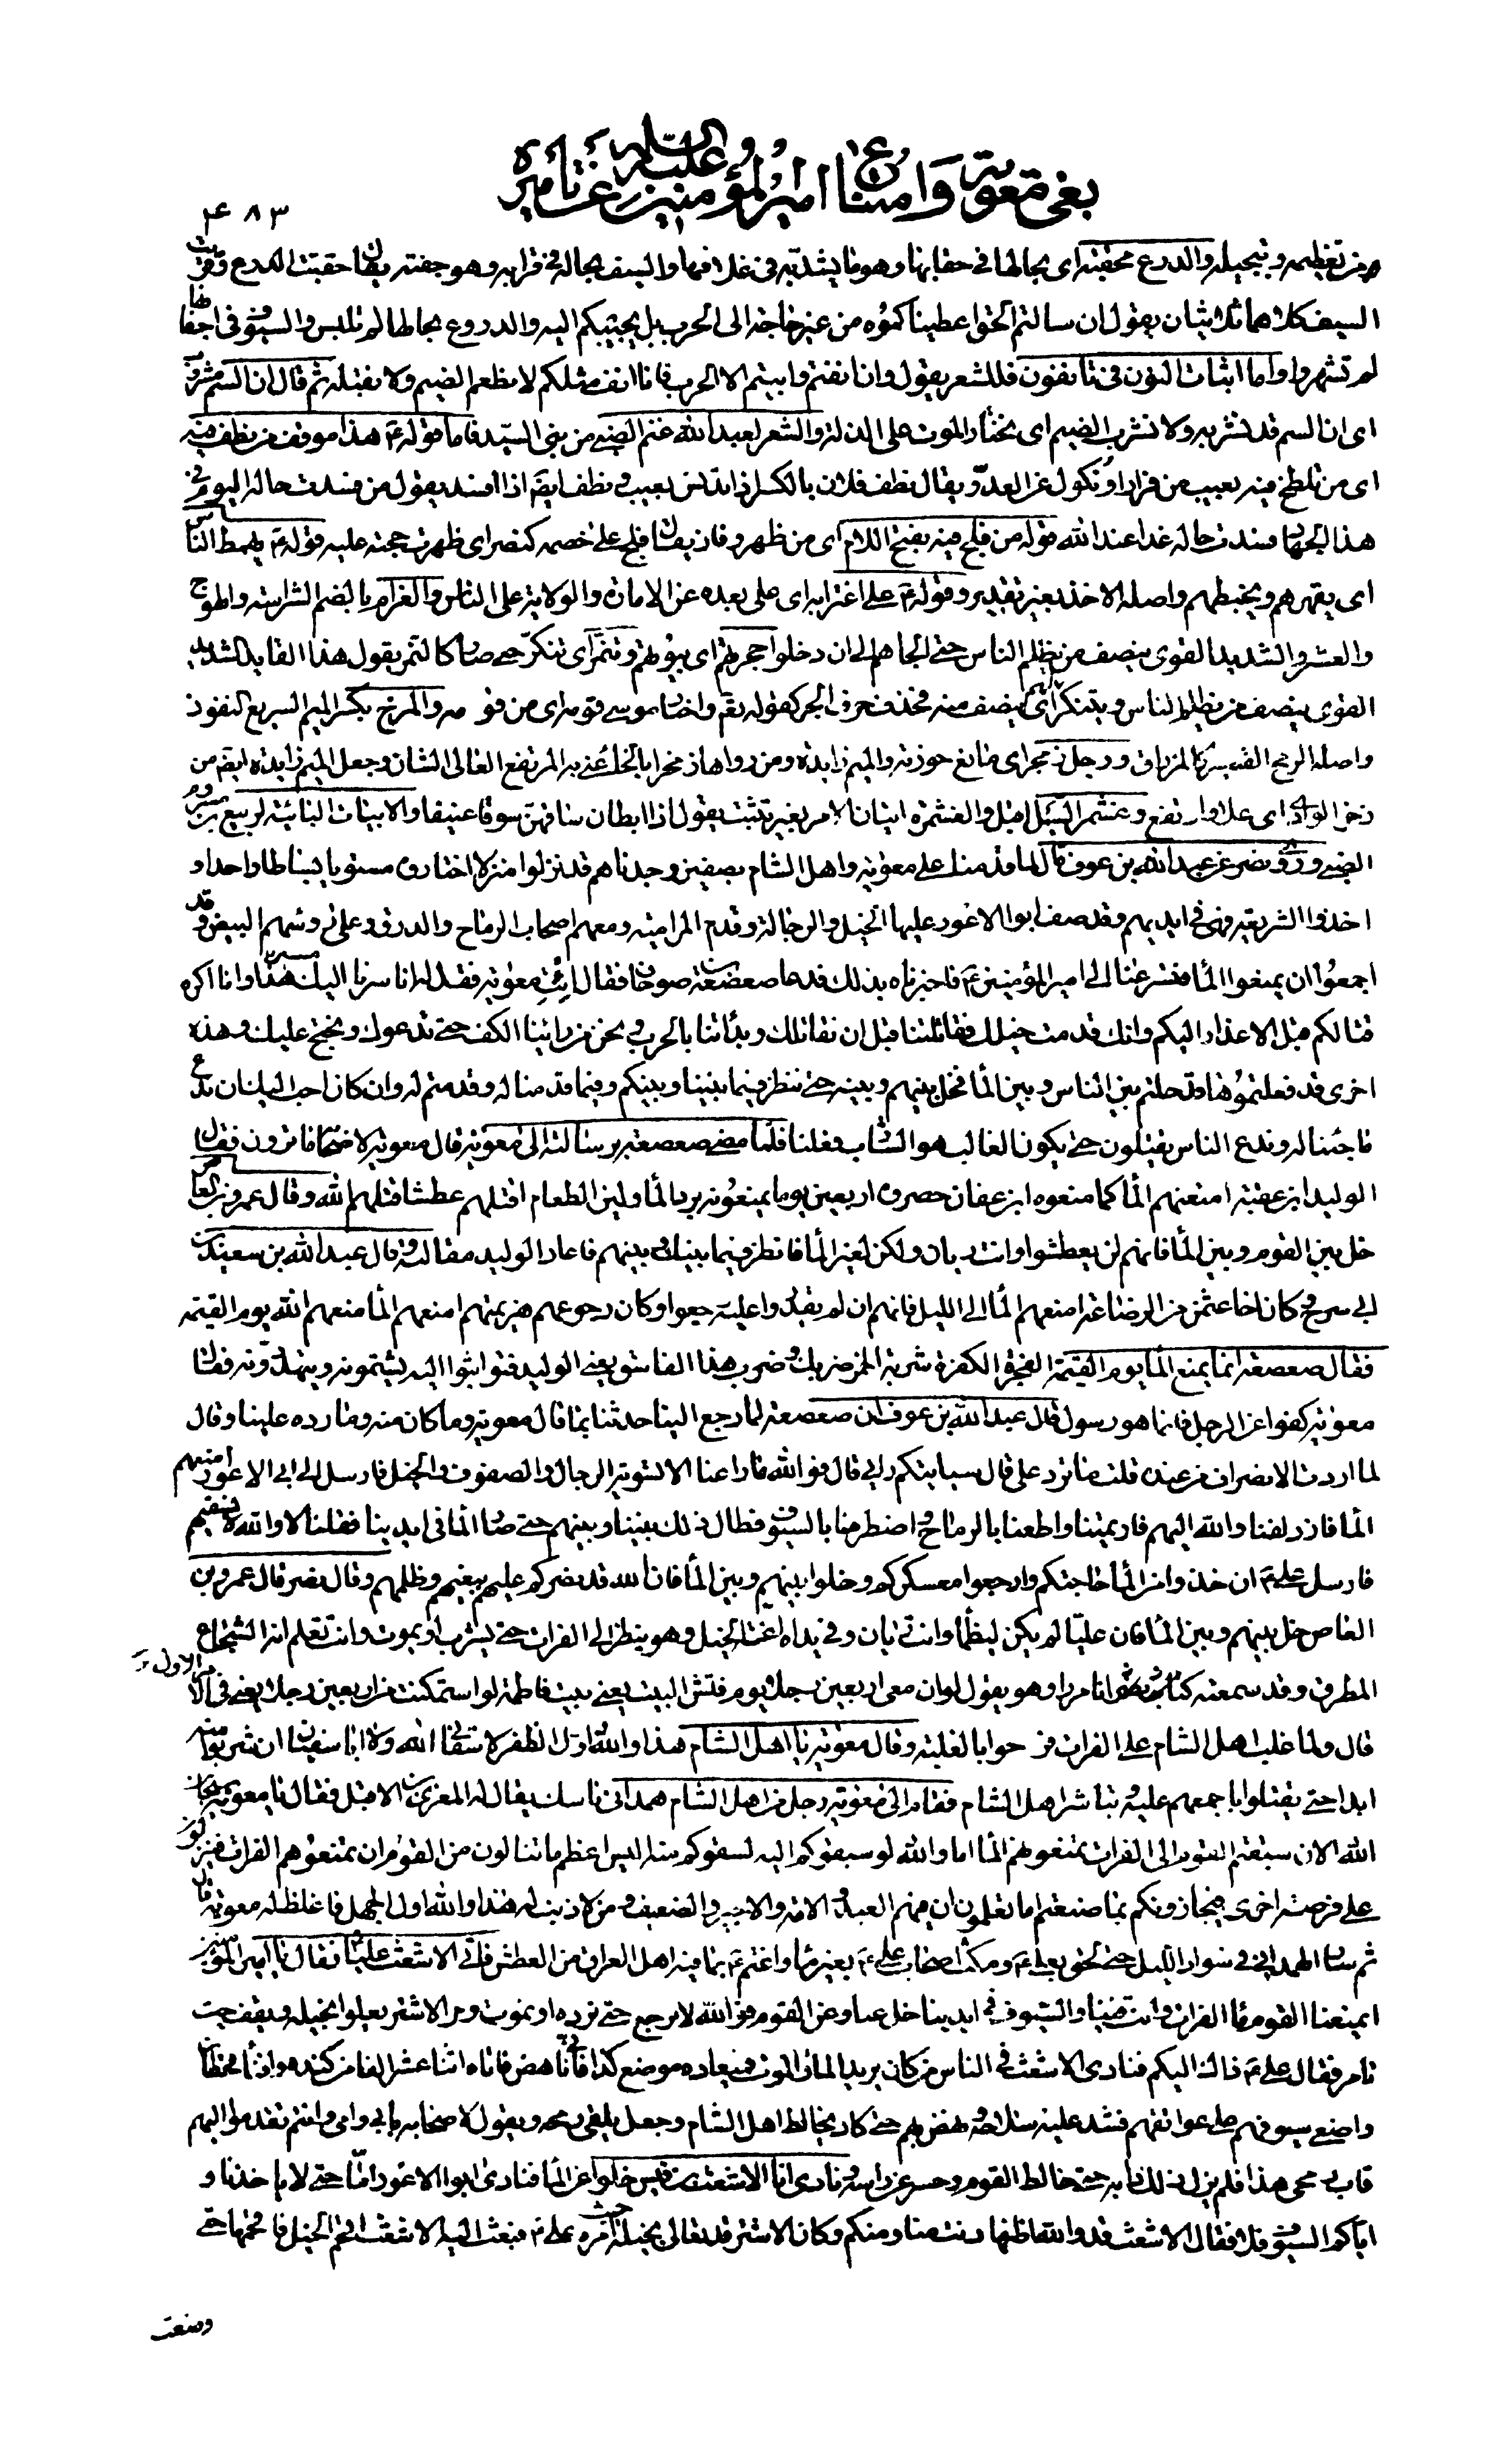 بغي معوية وامتناع امير المؤمنين عليه السلام عن تاميره
۴۸۳
من تعظيمه و تبجيله والدرع محقبة اى بحالها في حقابها وهو ما يشد به في غلافها والسيف بحاله في قرابه وهو جفنه يقال احقبت الدرع وقربت
السيف كلاهما ثلاثيان يقول ان سالتم الحق اعطيناكموه من غير حاجة الى الحرب بل نجيبكم اليه والدروع بحالها لم تلبس والسيوف في اجفانها
لم تشهر واما اثبات النون في تانفون فللشعر يقول وان انفتم وابيتم الا الحرب فانا انف مثلكم لا نطعم الضيم ولا نقبله ثم قال ان السم مشروب
اى ان السم قد نشربه ولا نشرب الضيم اى نختار الموت على الذلة والشعر لعبد الله عنم الضبي من بني السيد فاما قوله ع هذا موقف من نطف فيه
اى من تلطخ فيه بعيب من فرار او نكول عن العدو يقال نطف فلان بالكسر اذا تدنس بعيب و نطف ايضا اذا افسد يقول من فسدت حاله اليوم في
هذا الجهاد فسدت حاله غدا عند الله قوله من فلج فيه بفتح اللام اى من ظهر وفاز يقال فلج على خصمه كنصر اى ظهرت حجته عليه قوله ع يهمط الناس
اى يقهرهم ويخبطهم واصله الاخذ بغير تقدير وقوله ع على اغترابه اى على بعده عن الامارة والولاية على الناس والعرام بالضم الشراسة والهوج
والعشر الشديد القوى ينصف من يظلم الناس حتى الجاهم الى ان دخلوا حجرهم اى بيوتهم وتنمر اى تنكر حتى صار كالنمر يقول هذا القايد الشديد
القوى ينصف من يظلم الناس ويتنكر لهم اى ينصف منه فحذف حرف الجر كقوله تعم واختار موسى قومه اى من قومه والمزخ بكسر الميم السريع النفوذ
واصله الرمح القصير كالمزراق ورجل زمجر اى مانع حوزته والميم زايدة ومن رواها زمخرا بالخاء عنى به المرتفع العالى الشان وجعل الميم زايدة ايضا من
زخر الوادى اى علا وارتفع وغشمر السيل اقبل والغشمرة اتيان الامر بغير تثبت يقول اذا ابطان ساقهن سوقا عنيفا والابيات البائية لربيع بن مشروم
الضبي وروى نصر عن عبد الله بن عوف قال لما قدمنا على معوية واهل الشام بصفين وجدناهم قد نزلوا منزلا اختاروه مستويا بساطا واسعا و
اخذوا الشريعة فهي في ايديهم وقد صف ابو الاعور عليها الخيل والرجالة وقدم المرامية ومعهم اصحاب الرماح والدرق وعلى رؤسهم البيض وقد
اجمعوا ان يمنعوا الماء ففزعنا الى امير المؤمنين ع فاخبرناه بذلك فدعا صعصعة بن صوحان فقال ائت معوية فقل له انا سرنا اليك مسيرنا هذا وانا اكره
قتالكم قبل الاعذار اليكم وانك قدمت خيلك فقاتلتنا قبل ان نقاتلك وبدأتنا بالحرب ونحن من راينا الكف حتى ندعوك ونحتج عليك وهذه
اخرى قد فعلتموها قد حلتم بين الناس وبين الماء فخل بينهم وبينه حتى ننظر فيما بيننا وبينكم وفيما قدمنا له وقدمتم له وان كان احب اليك ان ندع
ما جئنا له وندع الناس يقتتلون حتى يكون الغالب هو الشارب فعلنا فلما مضى صعصعة برسالته الى معوية قال معوية لاصحابه ما ترون فقال
الوليد ابن عقبة امنعهم الماء كما منعوه ابن عفان حصروه اربعين يوما يمنعونه برد الماء ولين الطعام اقتلهم عطشا قتلهم الله وقال عمرو بن العاص
خل بين القوم وبين الماء فانهم لن يعطشوا وانت ريان ولكن لغير الماء فانظر فيما بينك وبينهم فاعاد الوليد مقالته وقال عبد الله بن سعيد بن
ابى سرح وكان اخا عثمن من الرضاعة امنعهم الماء الى الليل فانهم ان لم يقدروا عليه رجعوا وكان رجوعهم هزيمتهم امنعهم الماء منعهم الله يوم القيمة
فقال صعصعة انما يمنع الماء يوم القيمة الفجرة الكفرة شربة الخمر ضربك وضرب هذا الفاسق يعنى الوليد فتواثبوا اليه يشتمونه ويتهددونه فقال
معوية كفوا عن الرجل فانما هو رسول قال عبد الله بن عوف ان صعصعة لما رجع الينا حدثنا بما قال معوية وما كان منه وما رده علينا وقال
لما اردت الانصراف من عنده قلت ما ترد على قال سياتيكم رايى قال فوالله ما راعنا الا تسوية الرجال والصفوف والخيل فارسل الى ابى الاعور امنعهم
الماء فازدلفنا والله اليهم فارتمينا واطعنا بالرماح واضطربنا بالسيوف فطال ذلك بيننا وبينهم حتى صار الماء في ايدينا فقلنا لا والله لا نسقيهم
فارسل على ع ان خذوا من الماء حاجتكم وارجعوا معسكركم وخلوا بينهم وبين الماء فان الله قد نصركم عليهم ببغيهم وظلمهم وقال نصر قال عمرو بن
العاص خل بينهم وبين الماء فان عليا لم يكن ليظمأ وانت ريان وفي يداه اعنة الخيل وهو ينظر الى الفرات حتى يشرب او يموت وانت تعلم انه الشجاع
المطرق وقد سمعته انا مرارا وهو يقول لو ان معى اربعين رجلا يوم فتش البيت يعنى بيت فاطمة لو استمكنت من اربعين رجلا يعنى في الامر الاول
قال ولما غلب اهل الشام على الفرات فرحوا بالغلبة وقال معوية يا اهل الشام هذا والله اول الظفر لا سقانى الله ولا ابا سفيان ان شربوا منه
ابدا حتى يقتلوا باجمعهم عليه وتباشر اهل الشام فقام الى معوية رجل من اهل الشام همدانى ناسك يقال له المعرى بن الاقبل فقال يا معوية سبحان
الله الان سبقتم القوم الى الفرات تمنعوهم الماء اما والله لو سبقوكم اليه لسقوكم منه اليس اعظم ما تنالون من القوم ان تمنعوهم الفرات فينزلون
على فرضة اخرى فيجازونكم بما صنعتم اما تعلمون ان فيهم العبد والامة والاجير والضعيف ومن لا ذنب له هذا والله اول الجهل فاغلظ له معوية قال
ثم سار الهمدانى في سواد الليل حتى لحق بعلى ع ومكث اصحاب على ع بغير ماء واغتم ع بما فيه اهل العراق من العطش فاتى الاشعث عليا فقال يا امير المؤمنين
ايمنعنا القوم ماء الفرات وانت فينا والسيوف في ايدينا خل عنا وعن القوم فوالله لا نرجع حتى نرده او نموت ومر الاشتر يعلو بخيله ويقف حيث
تامر فقال على ع ذلك اليكم فنادى الاشعث في الناس من كان يريد الماء او الموت فميعاده موضع كذا فانى ناهض فاتاه اثنا عشر الفا من كنده وافناء قحطان
واضعى سيوفهم على عواتقهم فشد عليه سلاحه ونهض بهم حتى كاد يخالط اهل الشام وجعل يلقى رمحه ويقول لاصحابه بابى وامى وانتم تقدموا اليهم
قاب رمحى هذا فلم يزل ذلك دابه حتى خالط القوم وحسر عن راسه ونادى انا الاشعث بن قيس خلوا عن الماء فنادى ابو الاعور اما حتى لا ياخذنا و
اياكم السيوف فلا فقال الاشعث قد والله اظنها دنت منا ومنكم وكان الاشتر قد تعالى بخيله حيث امره على ع فبعث اليه الاشعث اقحم الخيل فاقحمها حتى
وضعت